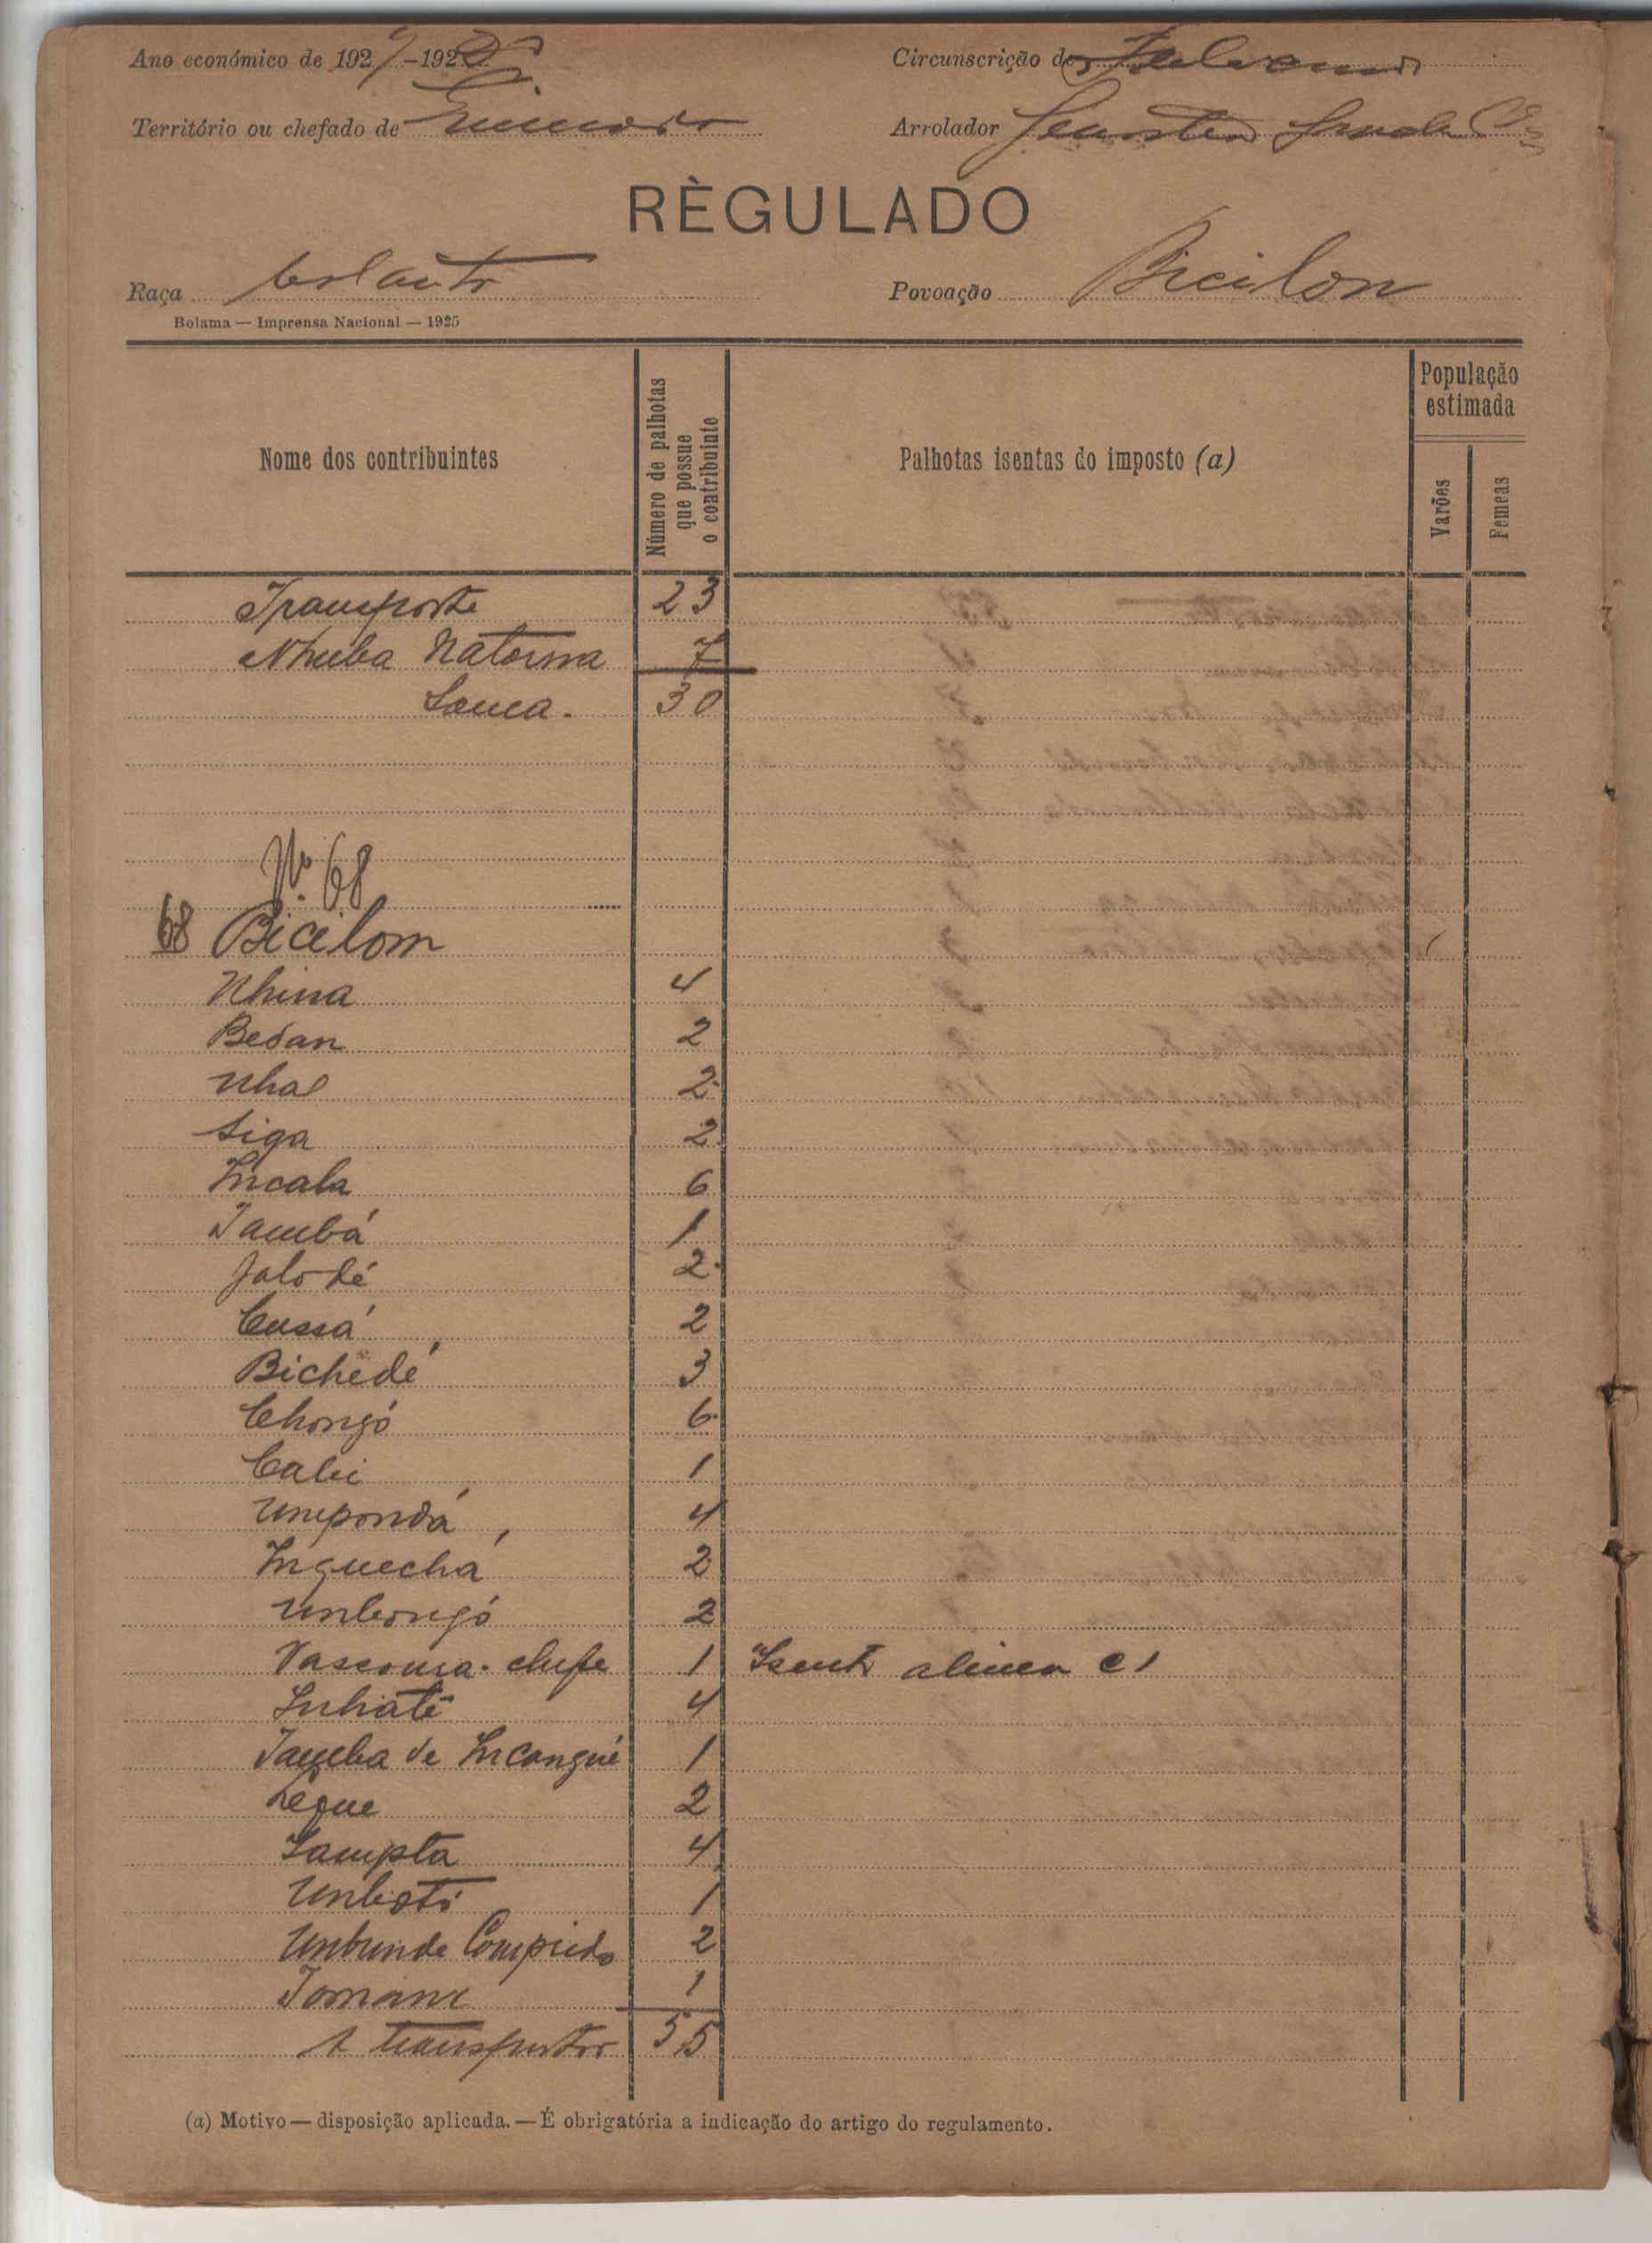 Ano económico de 192 -192
Circunscrição de
Território ou chefado de
Arrolador
RÈGULADO
Raça
Povoação Bicilon
Bolama — Imprensa Nacional — 1925
Nome dos contribuintes
Número de palhotas que possue o contribuinte
Palhotas isentas do imposto (a)
População estimada
Varões
Femeas
Transporte 23
Nhuba Natorna 7
Soma. 30
Nº 68
68 Bicilom
Nhina 4
Bedan 2
Nhal 2
Siga 2
Incala 6
Tambá 1
2
Cussá 2
Bichedé 3
Chongó 6
Cabi 1
Umpondá 4
Inquechá 2
Unbongó 2
chefe 1 Isento alinea c)
4
Tamba de Incangué 1
Leque 2
Sampta 4
Unboti 1
Unbunde Comprido 2
1
A transportar 55
(a) Motivo — disposição aplicada. — É obrigatória a indicação do artigo do regulamento.